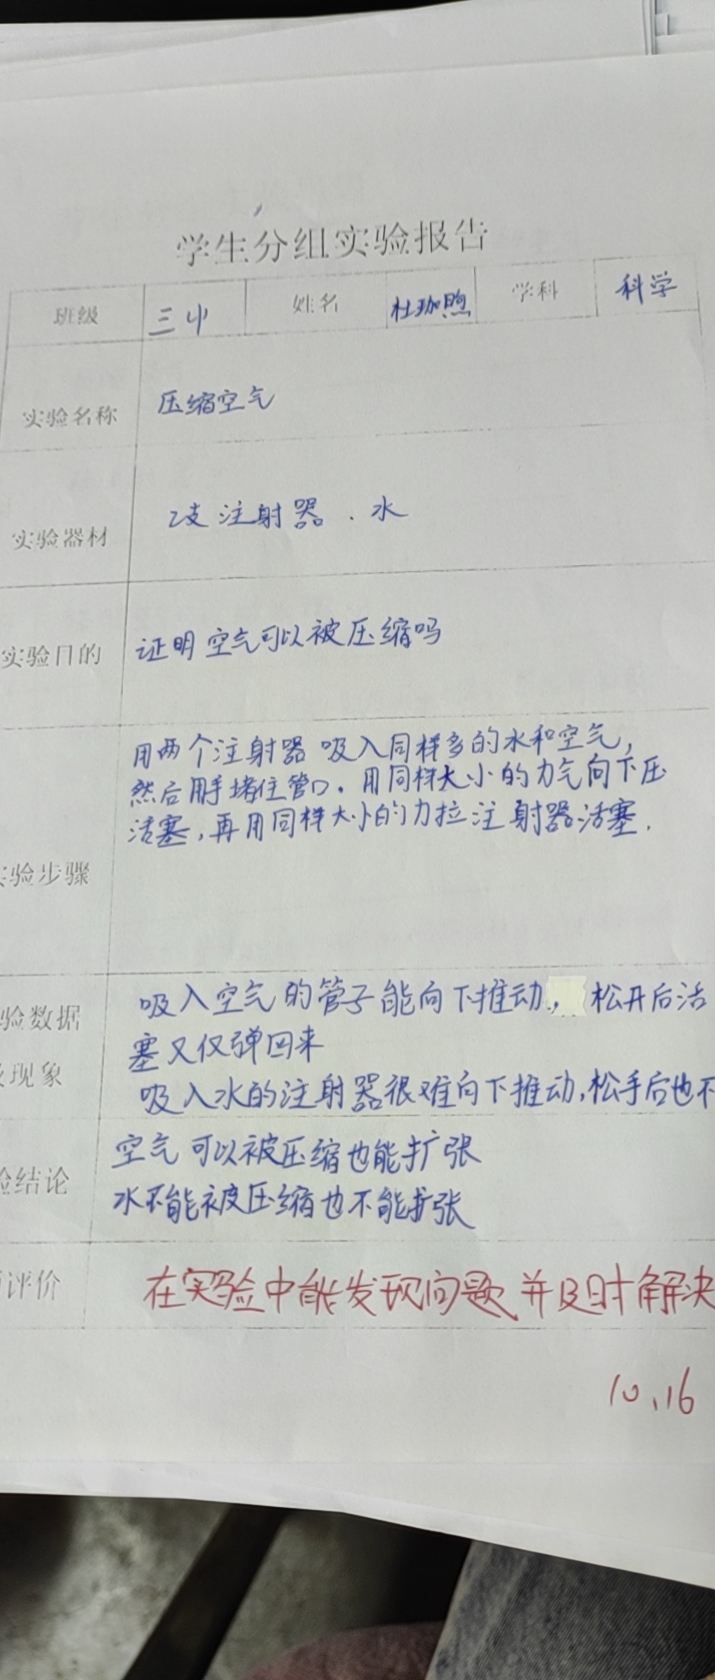 学生分组实验报告
班级 三4 姓名 杜珈煦 学科 科学
实验名称 压缩空气
实验器材 2支注射器、水
实验目的 证明空气可以被压缩吗
用两个注射器吸入同样多的水和空气，
然后用手堵住管口。用同样大小的力气向下压
活塞，再用同样大小的力拉注射器活塞.
验步骤
吸入空气的管子能向下推动，松开后活
验数据
塞又仅弹回来
现象
吸入水的注射器很难向下推动,松手后也不
空气可以被压缩也能扩张
验结论
水不能被压缩也不能扩张
评价 在实验中能发现问题并及时解决
10.16